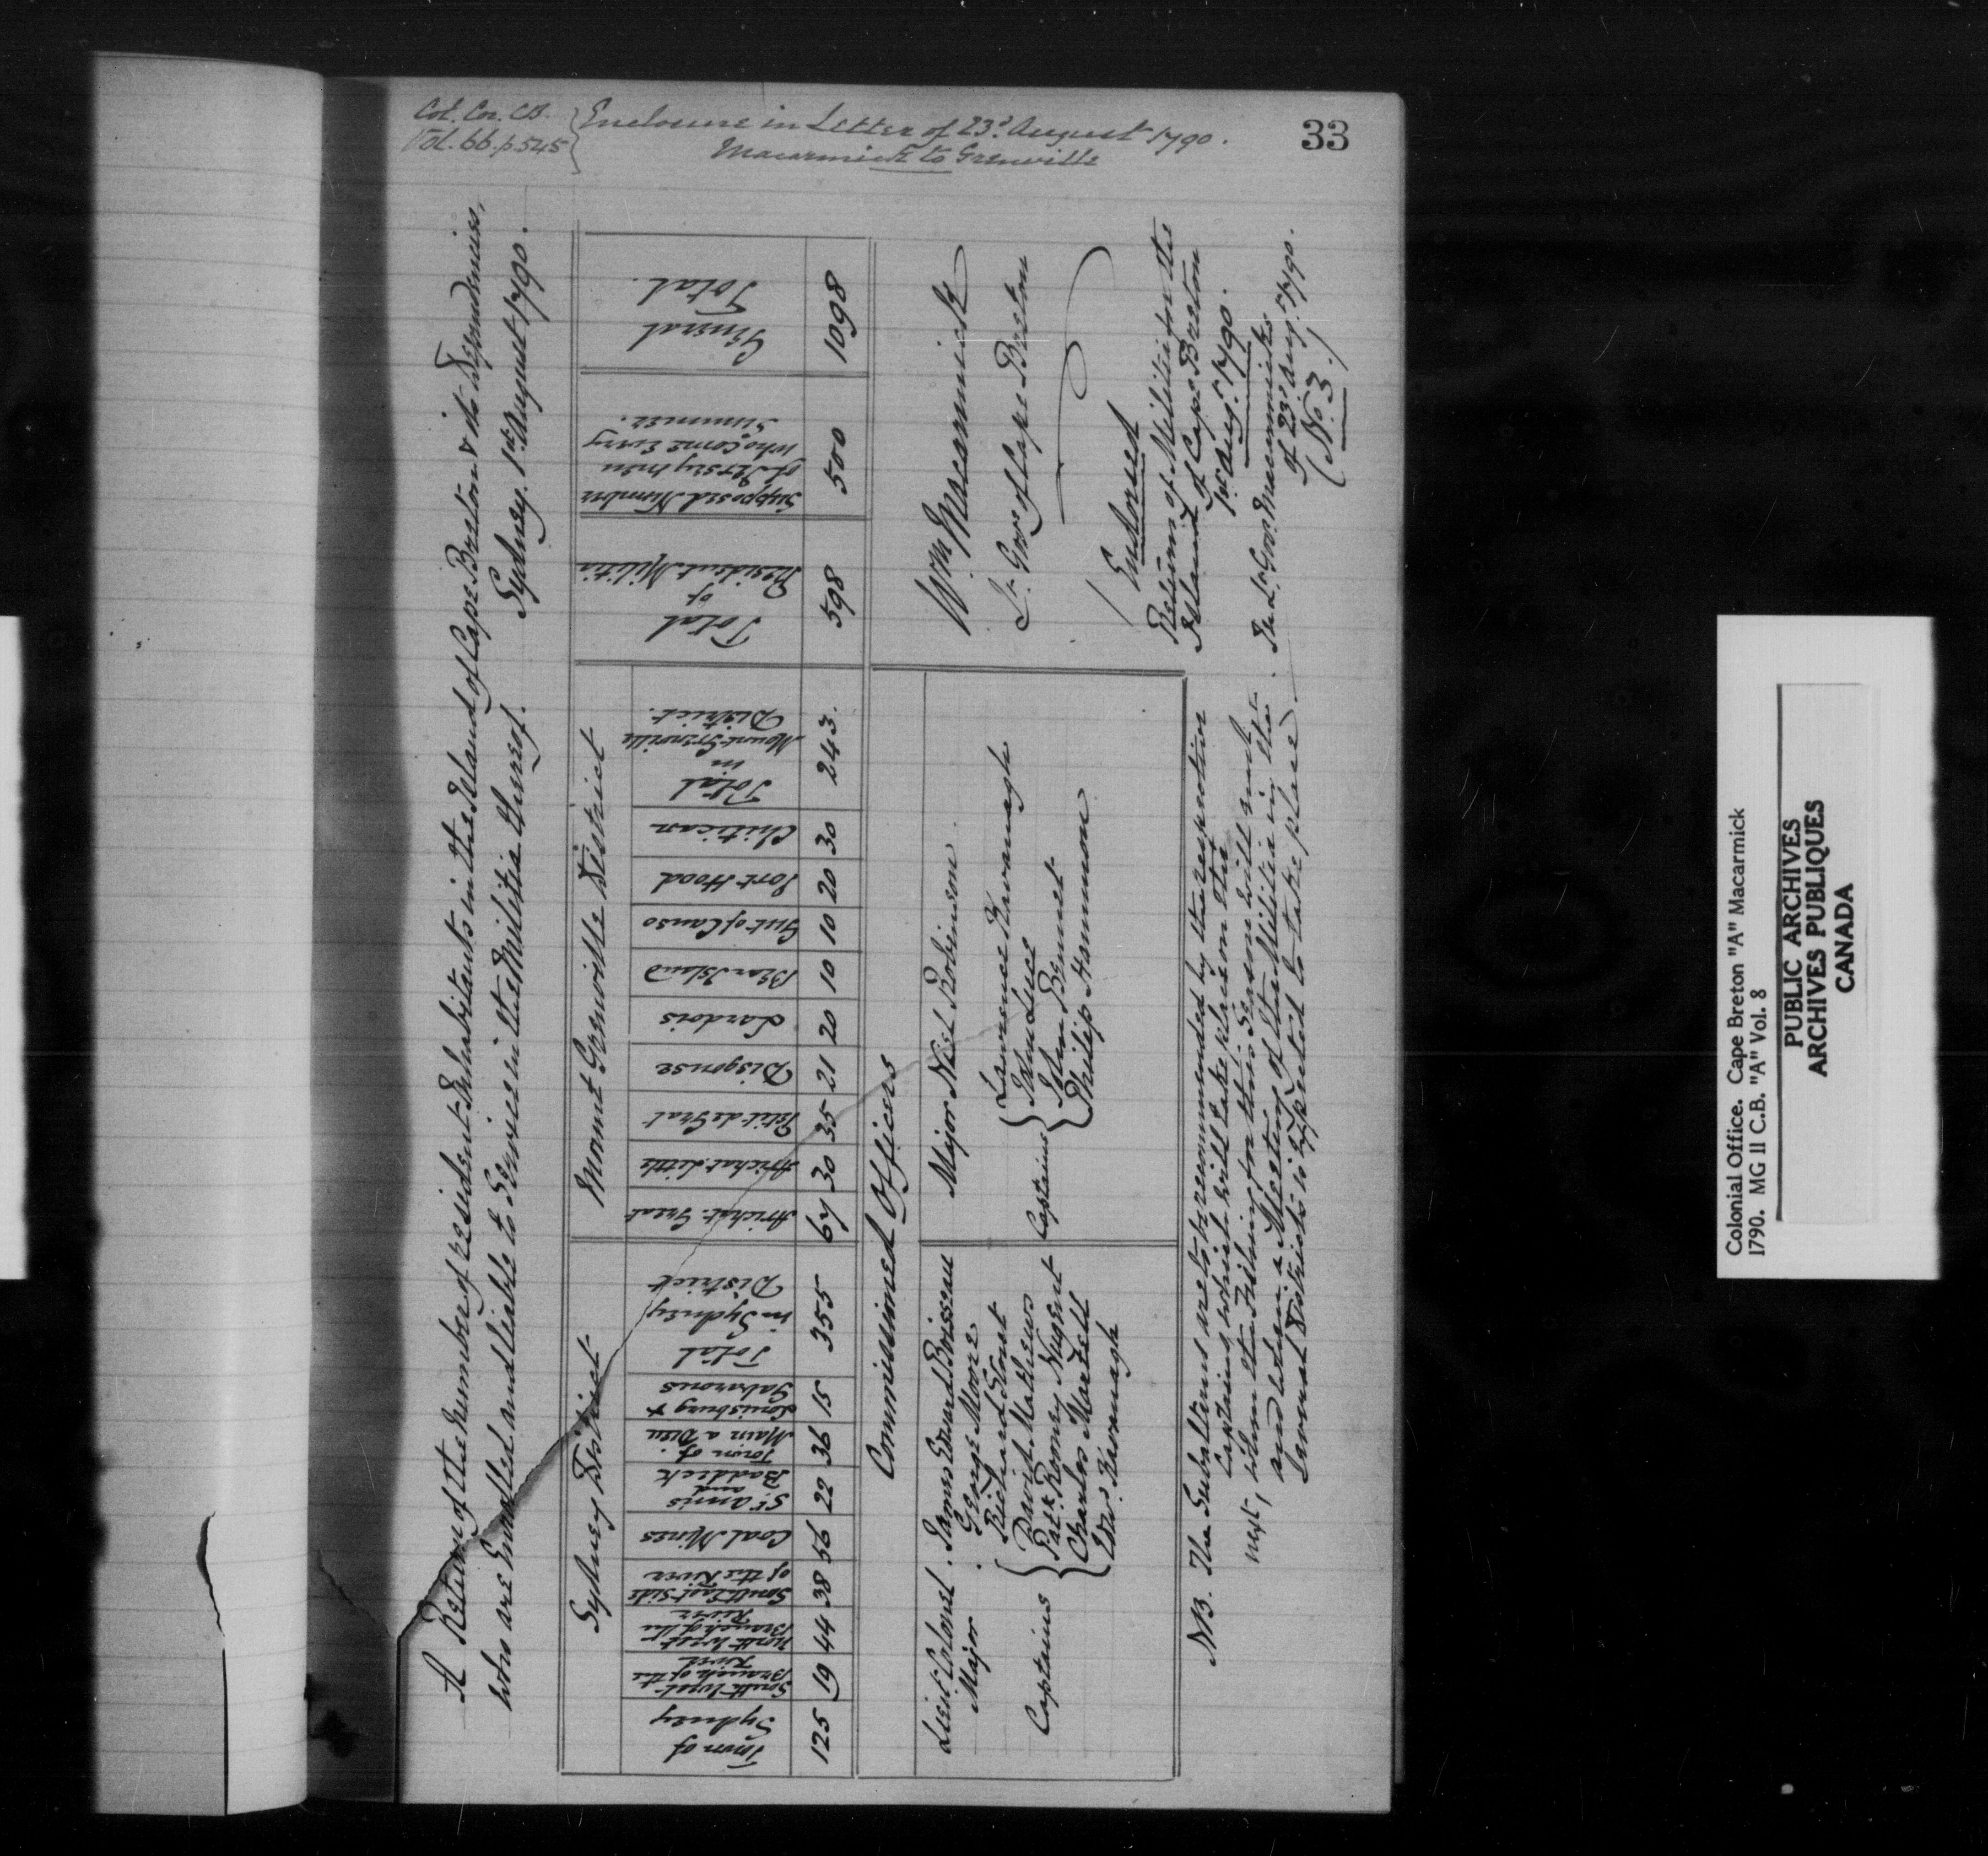 Col. Cor. C.B.
Vol. 66. p. 545
Enclosure in Letter of 23d. August 1790.
Macarmick to Grenville
33
A Return of the Number of resident Inhabitants in the Island of Cape Breton & its Dependencies,
who are Enrolled and liable to Service in the Militia thereof.
Sydney. 1st. August 1790.
Sydney District
Town of Sydney 125
South West Branch of the River 19
North West Branch of the River 44
South East Side of the River 38
Coal Mines 56
St. Anns and Baddeck 22
Town of Main a Dieu 36
Louisburg & Gabarous 15
Total in Sydney District 355
Mount Grenville District
Arichat Great 67
Arichat Little 30
Petit de Grat 35
Discouse 21
Lardois 20
Bear Island 10
Gut of Canso 10
Port Hood 20
Chitican 30
Total in Mount Grenville District. 243.
Total of Resident Militia 598
Supposed Number of Jersey men who come every Summer. 500
General Total. 1098
Commissioned Officers
Lieut. Colonel. James Edward Boisseau
Major. George Moore
Captains
Richard Stout
David Mathews
Patk. Rooney Nugent
Charles Martell
Wm. Kavanagh
Major Neil Robinson
Captains
Lawrence Kavanagh
John Luce
John Bennet
Philip Hammon
Wm Macarmick
Lt. Govr. of Cape Breton
NB. The Subalterns are to be recommended by the respective
Captains, which will take place on the
next, when the Fishing for this Season will end,
and when a Meeting of the Militia in the
several Districts is expected to take place.
(Endorsed
Return of Militia for the
Island of Cape Breton
1st. Augt. 1790.
In Lt. Govr. Macarmick's
of 23d. Augt. 1790.
(No. 3.)
Colonial Office. Cape Breton "A" Macarmick
1790. MG II C.B. "A" Vol. 8
PUBLIC ARCHIVES
ARCHIVES PUBLIQUES
CANADA